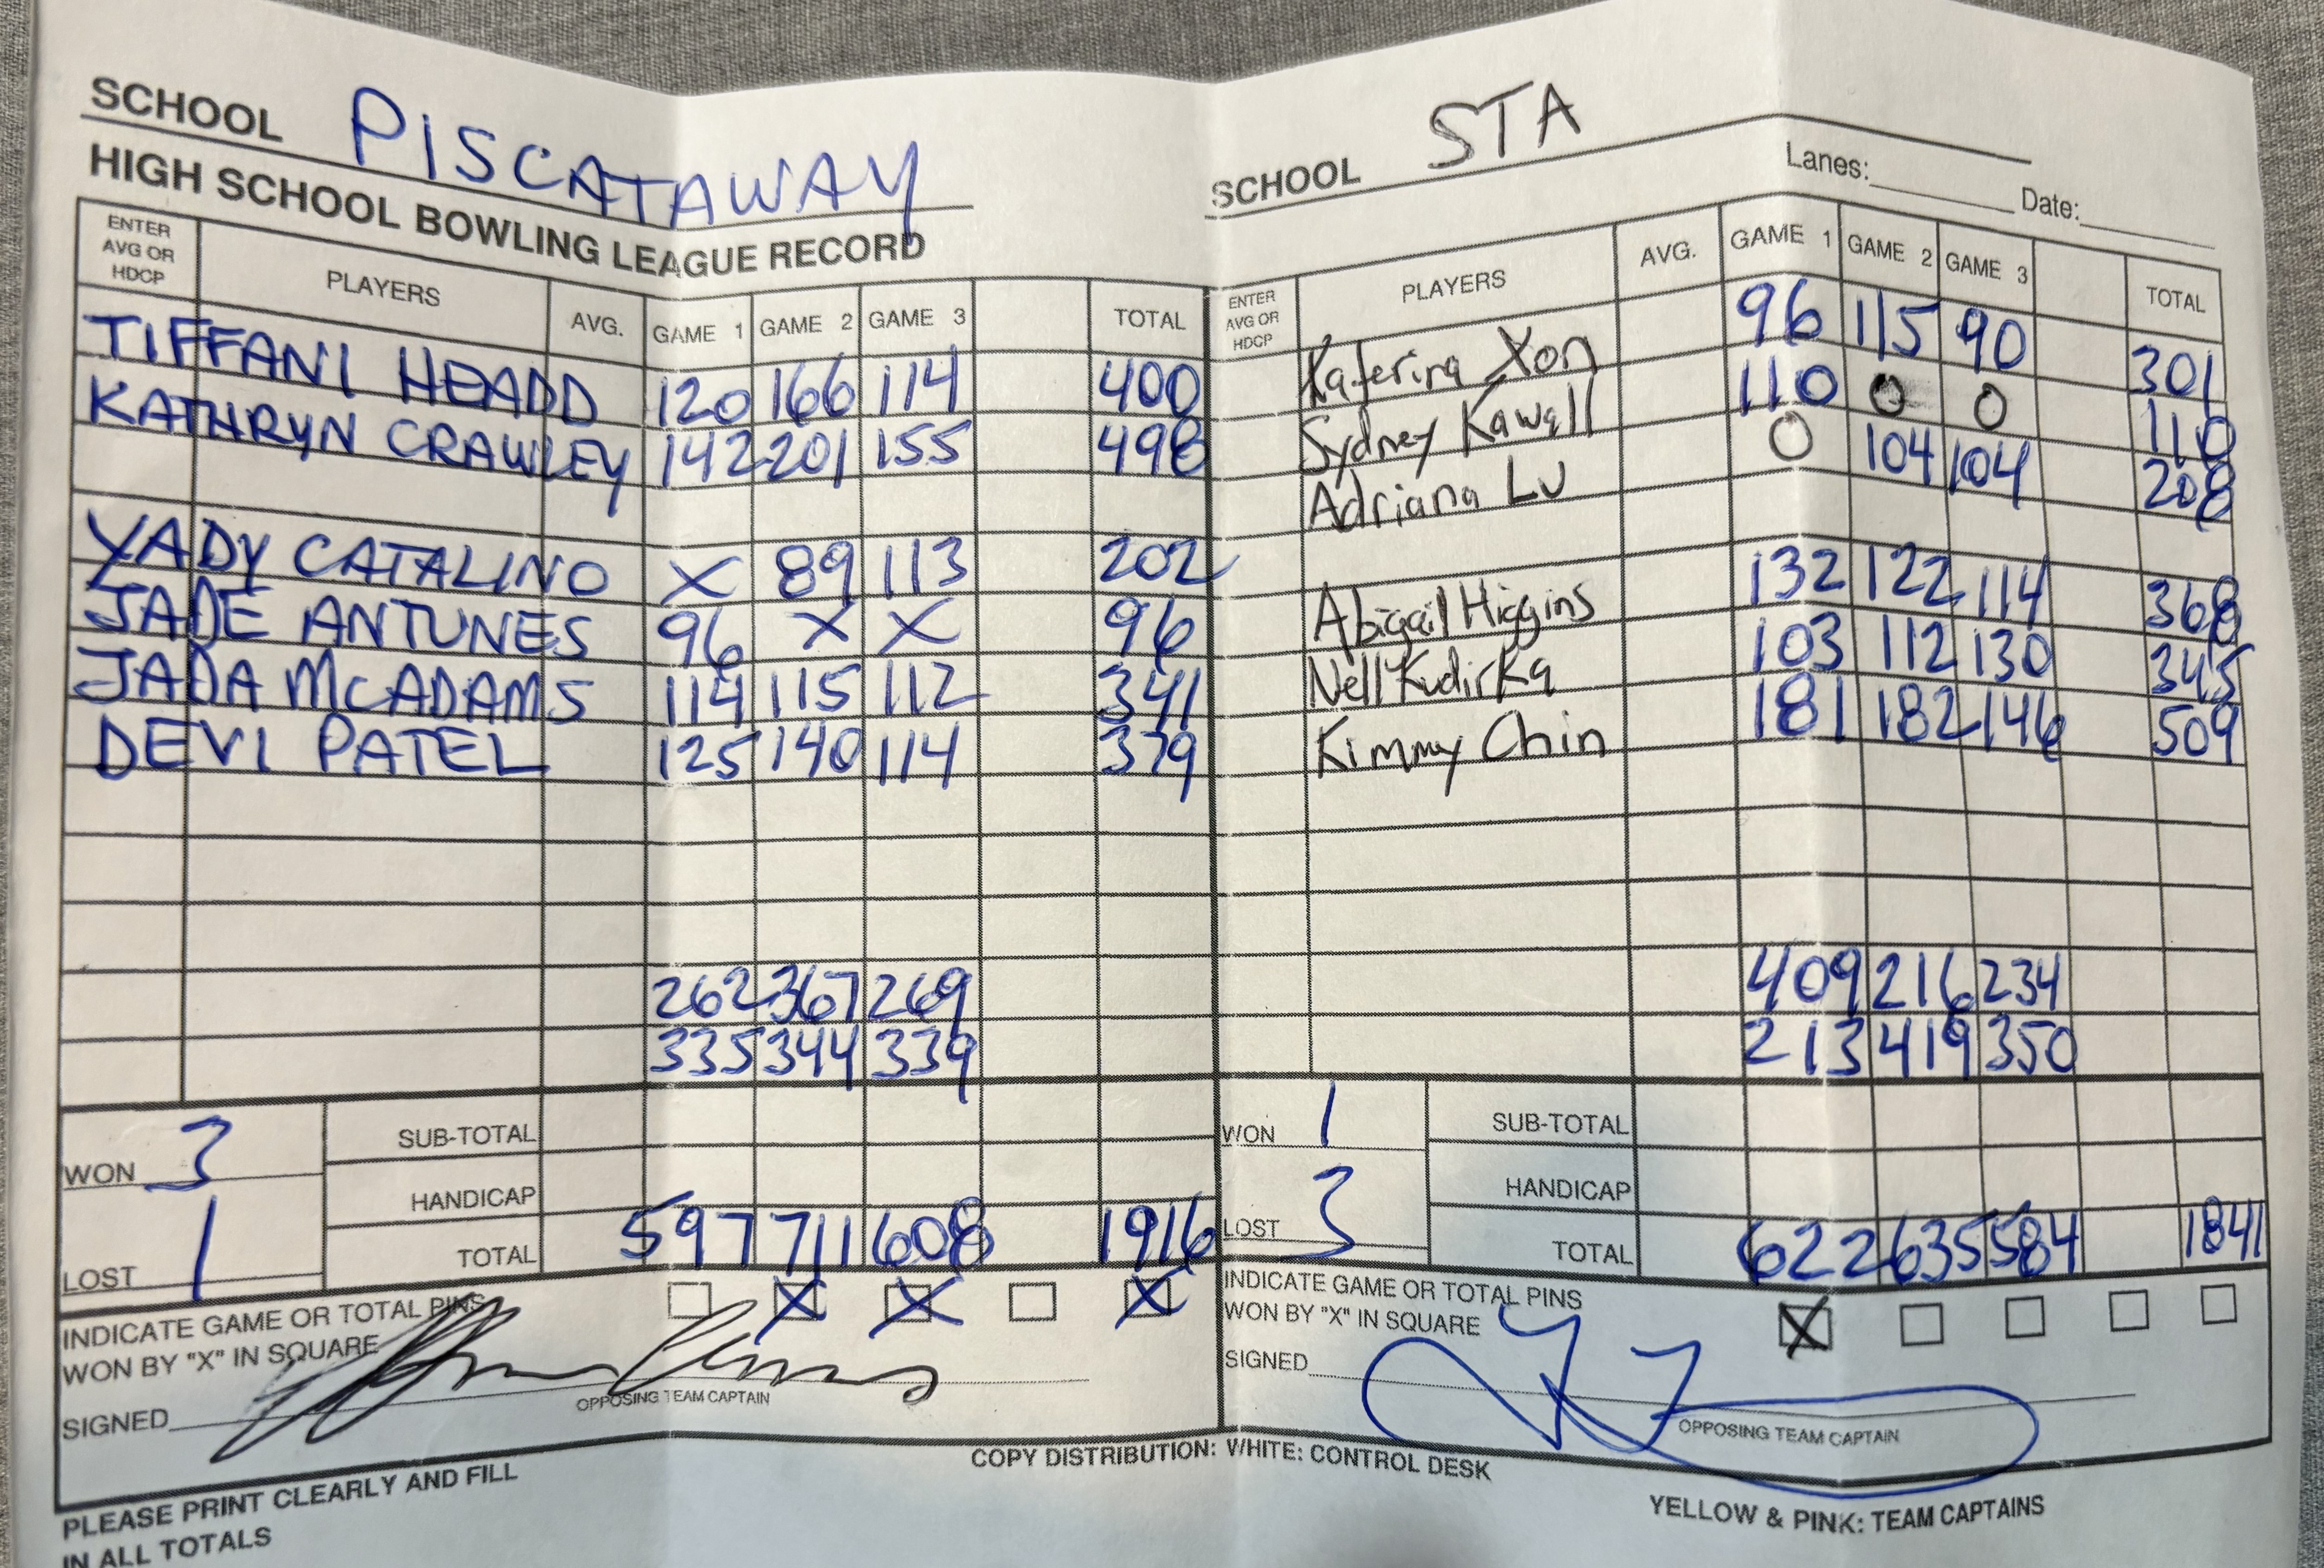 SCHOOL PISCATAWAY
HIGH SCHOOL BOWLING LEAGUE RECORD
ENTER AVG OR HDCP PLAYERS AVG. GAME 1 GAME 2 GAME 3 TOTAL
TIFFANI HEADD 120 166 114 400
KATHRYN CRAWLEY 142 201 155 498
YADY CATALINO X 89 113 202
JADE ANTUNES 96 X X 96
JADA McADAMS 114 115 112 341
DEVI PATEL 125 140 114 379
262 367 269
335 344 339
WON 3
LOST 1
SUB-TOTAL
HANDICAP
TOTAL 597 711 608 1916
INDICATE GAME OR TOTAL PINS
WON BY "X" IN SQUARE X X X
SIGNED
OPPOSING TEAM CAPTAIN
SCHOOL STA
Lanes: Date:
ENTER AVG OR HDCP PLAYERS AVG. GAME 1 GAME 2 GAME 3 TOTAL
Katerina Xon 96 115 90 301
Sydney Kawall 110 0 0 110
Adriana Lu 0 104 104 208
Abigail Higgins 132 122 114 368
Nell Kudirka 103 112 130 345
Kimmy Chin 181 182 146 509
409 216 234
213 419 350
WON 1
LOST 3
SUB-TOTAL
HANDICAP
TOTAL 622 635 584 1841
INDICATE GAME OR TOTAL PINS
WON BY "X" IN SQUARE X
SIGNED
OPPOSING TEAM CAPTAIN
PLEASE PRINT CLEARLY AND FILL
IN ALL TOTALS
COPY DISTRIBUTION: WHITE: CONTROL DESK
YELLOW & PINK: TEAM CAPTAINS